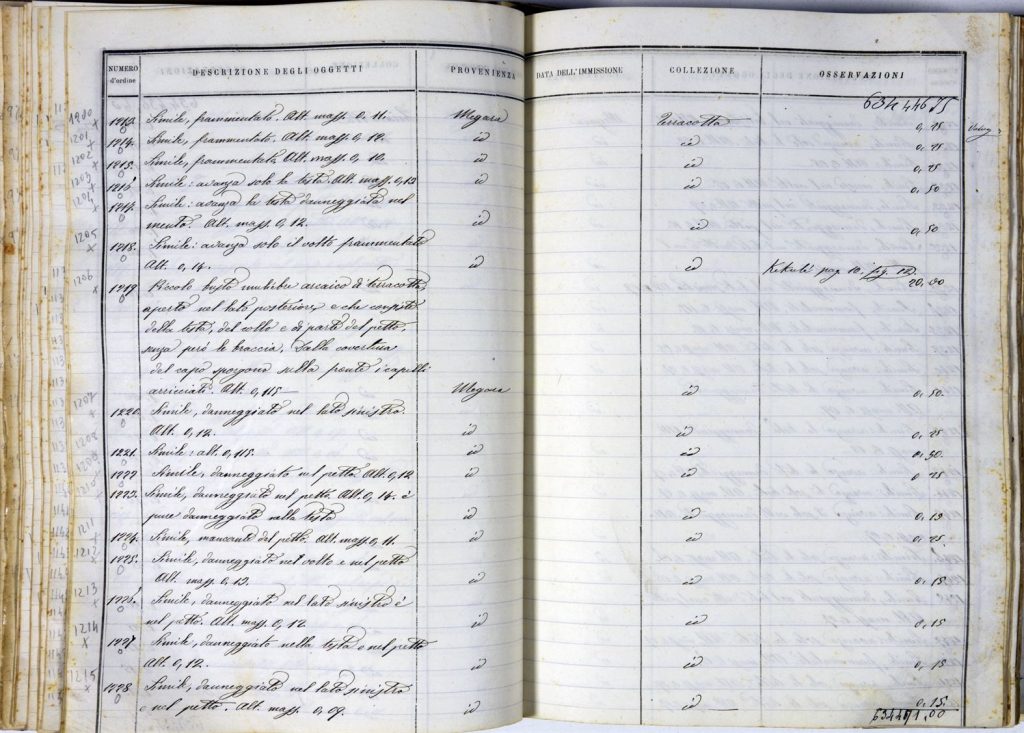 NUMERO d'ordine DESCRIZIONE DEGLI OGGETTI PROVENIENZA DATA DELL'IMMISSIONE COLLEZIONE OSSERVAZIONI
1200 1213. Simile, frammentata. Alt. mass. 0, 11. Megara Terracotta 0, 25
1201 1214. Simile, frammentata. Alt. mass. 0, 12. id id 0, 25
1202 1215. Simile, frammentata Alt. mass. 0, 10. id id 0, 25
1203 1216 Simile: avanza solo la testa. Alt. mass. 0, 13 id id 0, 50
1204 1217. Simile: avanza la testa danneggiata nel
mento. Alt. mass. 0, 12. id id 0, 50
1205 1218. Simile: avanza solo il volto frammentato
Alt. 0, 14. id id Kekulé pag. 10. fig. 12.
1206 1219 Piccolo busto muliebre arcaico di terracotta, 20, 00
aperto nel lato posteriore, e che consiste
della testa, del collo e di parte del petto,
senza però le braccia. Dalla covertura
del capo sporgono sulla fronte i capelli
arricciati. Alt. 0, 115 Megara id 0, 50.
1207 1220. Simile, danneggiato nel lato sinistro.
Alt. 0, 12. id id 0, 25
1208 1221. Simile: alt. 0, 115. id id 0, 50.
1209 1222 Simile, danneggiato nel petto. Alt. 0, 12 id id 0, 25
1210 1223. Simile, danneggiato nel petto. Alt. 0, 14. è
pure danneggiato nella testa id id 0, 15
1211 1224. Simile, mancante del petto. Alt. mass. 0, 11. id id 0, 25.
1212 1225. Simile, danneggiato nel volto e nel petto
Alt. mass. 0, 13. id id 0, 15
1213 1226. Simile, danneggiato nel lato sinistro è
nel petto. Alt. mass. 0, 12 id id 0, 15
1214 1227. Simile, danneggiato nella testa e nel petto
Alt. 0, 12. id id 0, 15
1215 1228. Simile, danneggiato nel lato sinistro
e nel petto. Alt. mass. 0, 09. id id 0, 15.